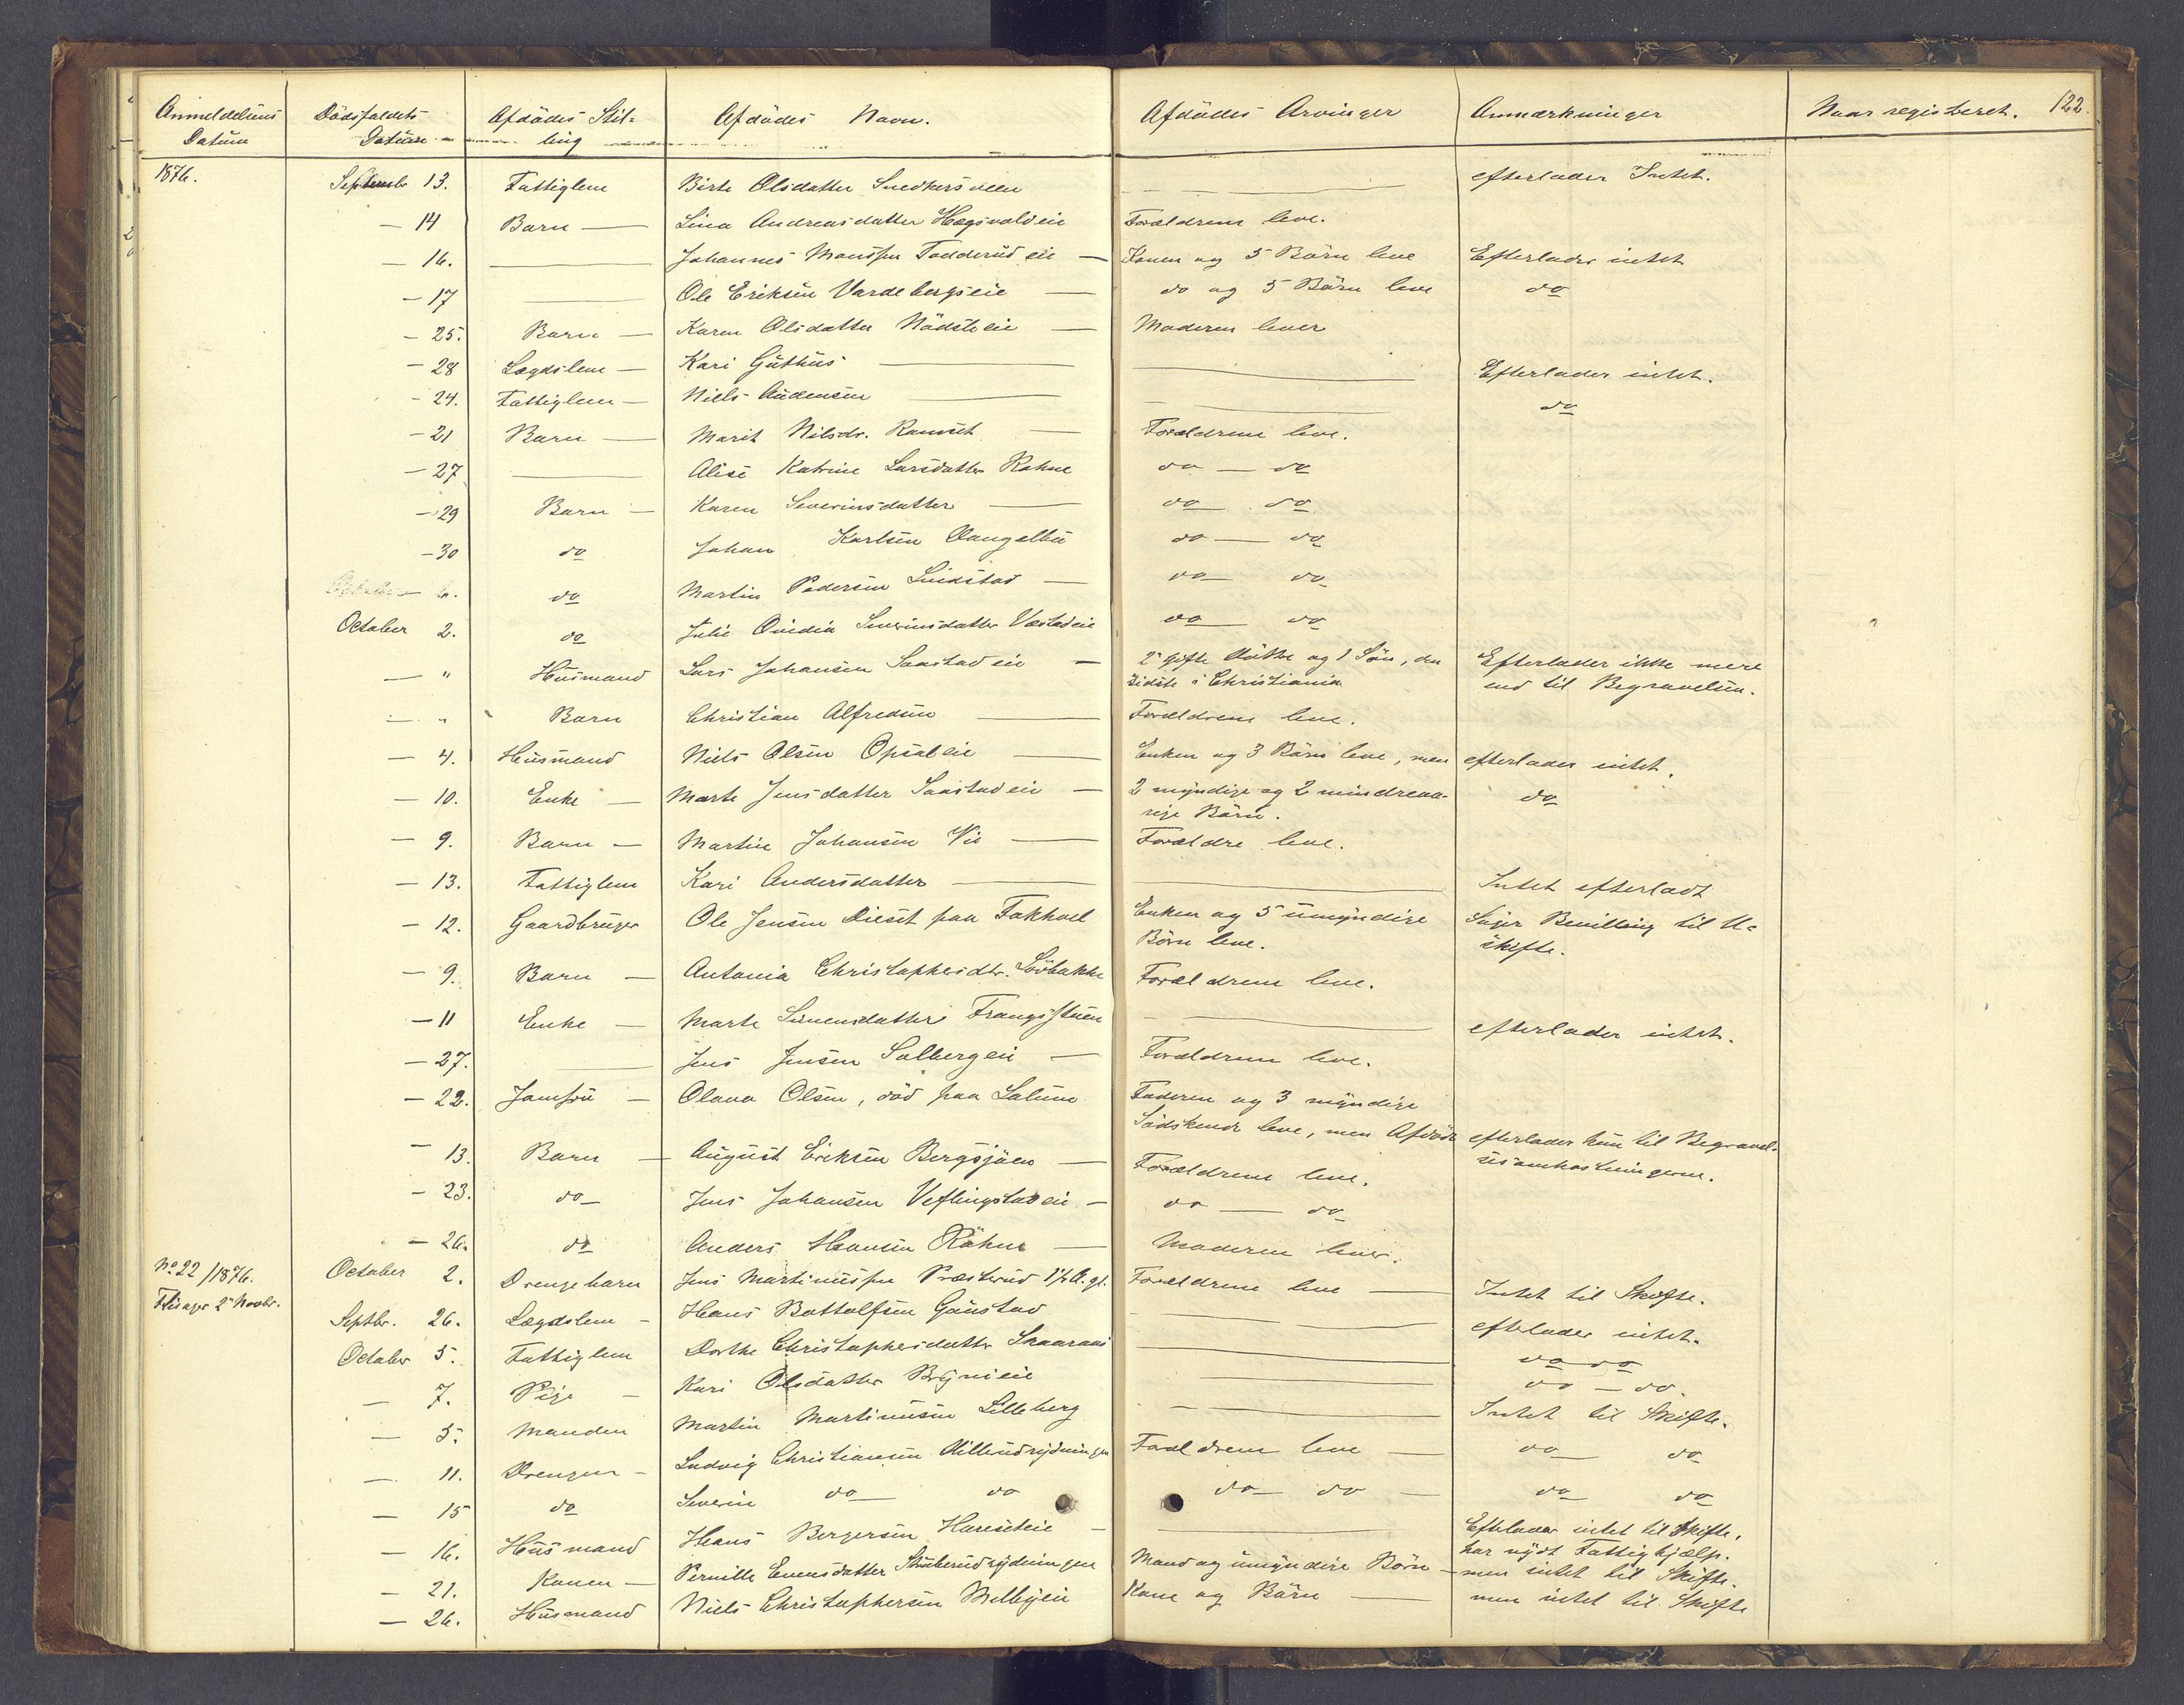 Anmeldelsens Datum | Dödsfaldets Datum | Afdödes Stilling | Afdödes Navn. | Afdödes Arvinger | Anmærkninger | Naar registeret. 122.
1876. | September 13. | Fattiglem | Birte Olsdatter | — | efterlader Intet.
— 14 | Barn — | Lina Andreasdatter Hægsvoldeie | Forældrene leve.
— 16. | — | Johannes Monssen Fodderud eie — | Konen og 5 Börn leve | Efterlader intet
— 17 | — | Ole Eriksen Vardebergseie — | do og 5 Börn leve | do
— 25. | Barn — | Karen Olsdatter Nödsteie — | Moderen lever
— 28 | Lægdslem — | Kari Guthus — | — | Efterlader intet.
— 24. | Fattiglem — | Niels Audensen — | — | do
— 21 | Barn — | Marit Nilsdr. Ramset — | Forældrene leve.
— 27 | — | Alise Katrine Larsdatter Rohne | do — do
— 29 | Barn — | Karen Severinsdatter — | do do
— 30 | do | Johan Karlsen | do — do
6. | do | Martin Pedersen Lindstad — | do do
October 2. | do | Julie Severinsdatter | do do
— " | Husmand | Lars Johansen Saastadeie — | 2 gifte Döttre og 1 Sön, den | Efterlader ikke mere
sidste i Christiania | end til Begravelsen.
— " | Barn | Christian Alfredsen — | Forældrene leve.
— 4. | Husmand | Niels Olsen Opsaleie — | Enken og 3 Börn leve, men | efterlader intet.
— 10. | Enke — | Marte Jensdatter Saastadeie — | 2 myndige og 2 mindreaa- | do
rige Börn.
— 9. | Barn — | Martin Johansen Vie — | Forældre leve.
— 13. | Fattiglem | Kari Andersdatter — | — | Intet efterladt
— 12. | Gaardbruger | Ole Jensen Dieset paa Fakhoel | Enken og 5 umyndige | Söger Bevilling til U-
Börn leve. | skifte.
— 9. | Barn — | Antonia Christophersdtr. Lövbakke | Forældrene leve.
— 11 | Enke — | Marte Simensdatter | — | efterlader intet.
— 27. | — | Jens Jensen Solbergeie — | Forældrene leve.
— 22. | Jomfru — | Olava Olsen, död paa Salune | Faderen og 3 myndige
Södskende leve, men Afdöde | efterlader kun til Begravel-
— 13. | Barn — | August Eriksen Bergsjöen — | Forældrene leve. | sesomkostningerne.
— 23. | do | Jens Johansen Veflingstadeie — | do — do
— 26. | do | Anders Hansen Röhne — | Moderen lever.
No 22/1876. | October 2. | Drengebarn | Jens Martinussen Præsterud 1½ A. gl. | Forældrene leve — | Intet til Skifte.
Flisager 2 Novbr. | Septbr. 26. | Lægdslem — | Hans Bottolfsen Gaustad | — | efterlader intet.
October 5. | Fattiglem | Dorthe Christophersdatter | — | do do
— 7. | Pige — | Kari Olsdatter Brynieie | — | do — do.
— 5. | Manden | Martin Martinusen Lilleberg | — | Intet til Skifte.
— 11. | Drengen — | Ludvig Christiansen | Forældrene leve — | do do
— 15 | do | Severin do do | do do — | do do
— 16. | Husmand | Hans Bergersen Hareseteie — | — | Efterlader intet til Skifte,
har nydt Fattighjælp.
— 21. | Konen — | Pernille Evensdatter | Mand og umyndige Börn — | men intet til Skifte.
— 26. | Husmand | Niels Christophersen Melbyeie | Kone og Börn — | men intet til Skifte